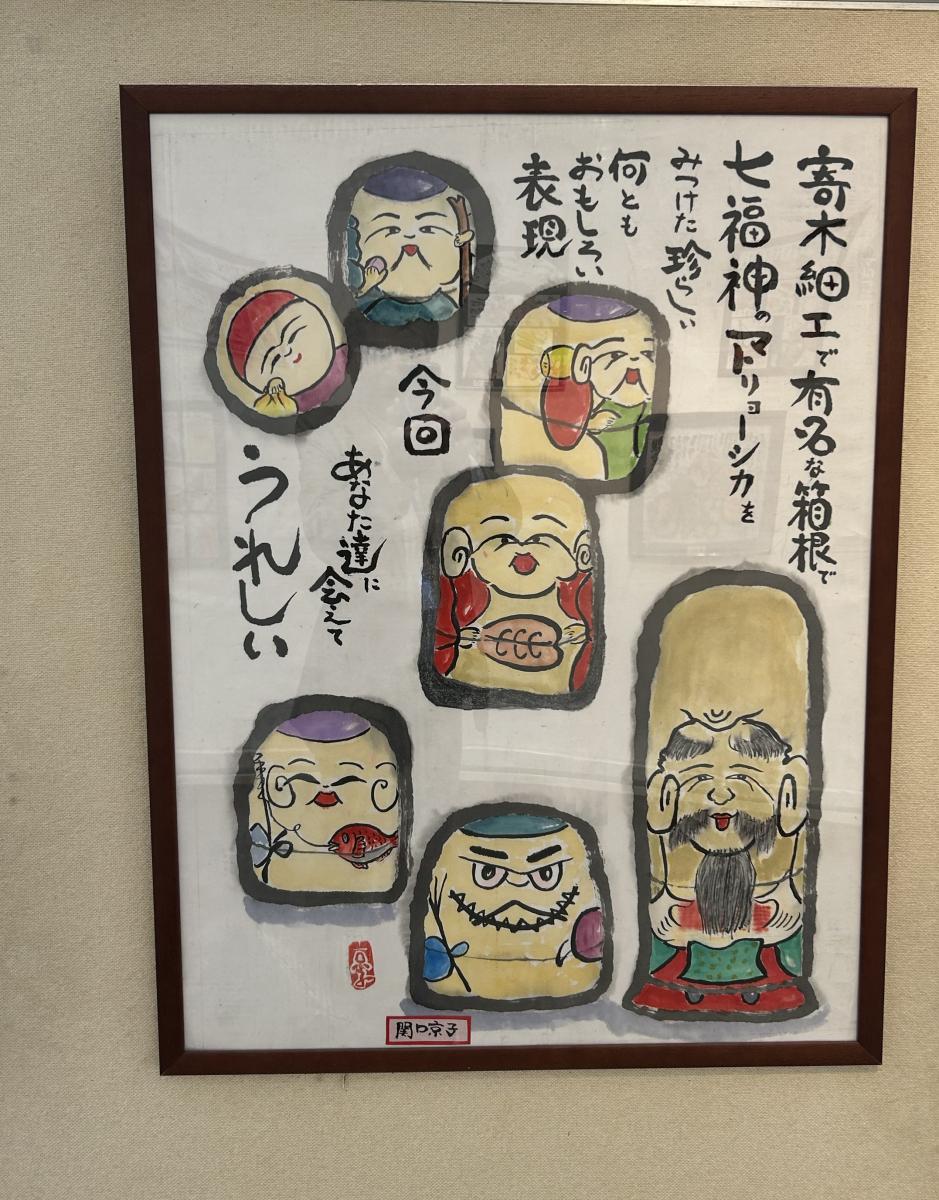 寄木細工で有名な箱根で
七福神のマトリョーシカを
みつけた珍らしい
何とも
おもしろい
表現
今回
あなた達に
会えて
うれしい
関口京子